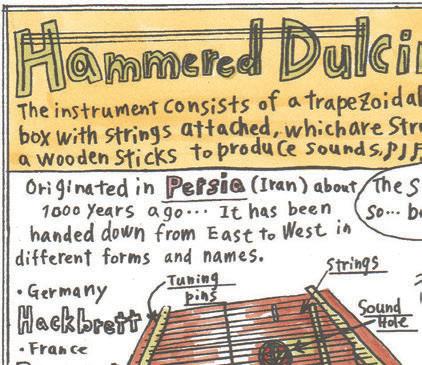 Hammered Dulci
The instrument consists of a trapezoidal
box with strings attached, which are Stru
a wooden sticks to produce sounds.
Originated in Persia (Iran) about
1000 years ago... It has been
handed down from East to West in
different forms and names.
The S
So... b
Tuning
pins
Strings
Sound
Hole
• Germany
Hackbrett
• France